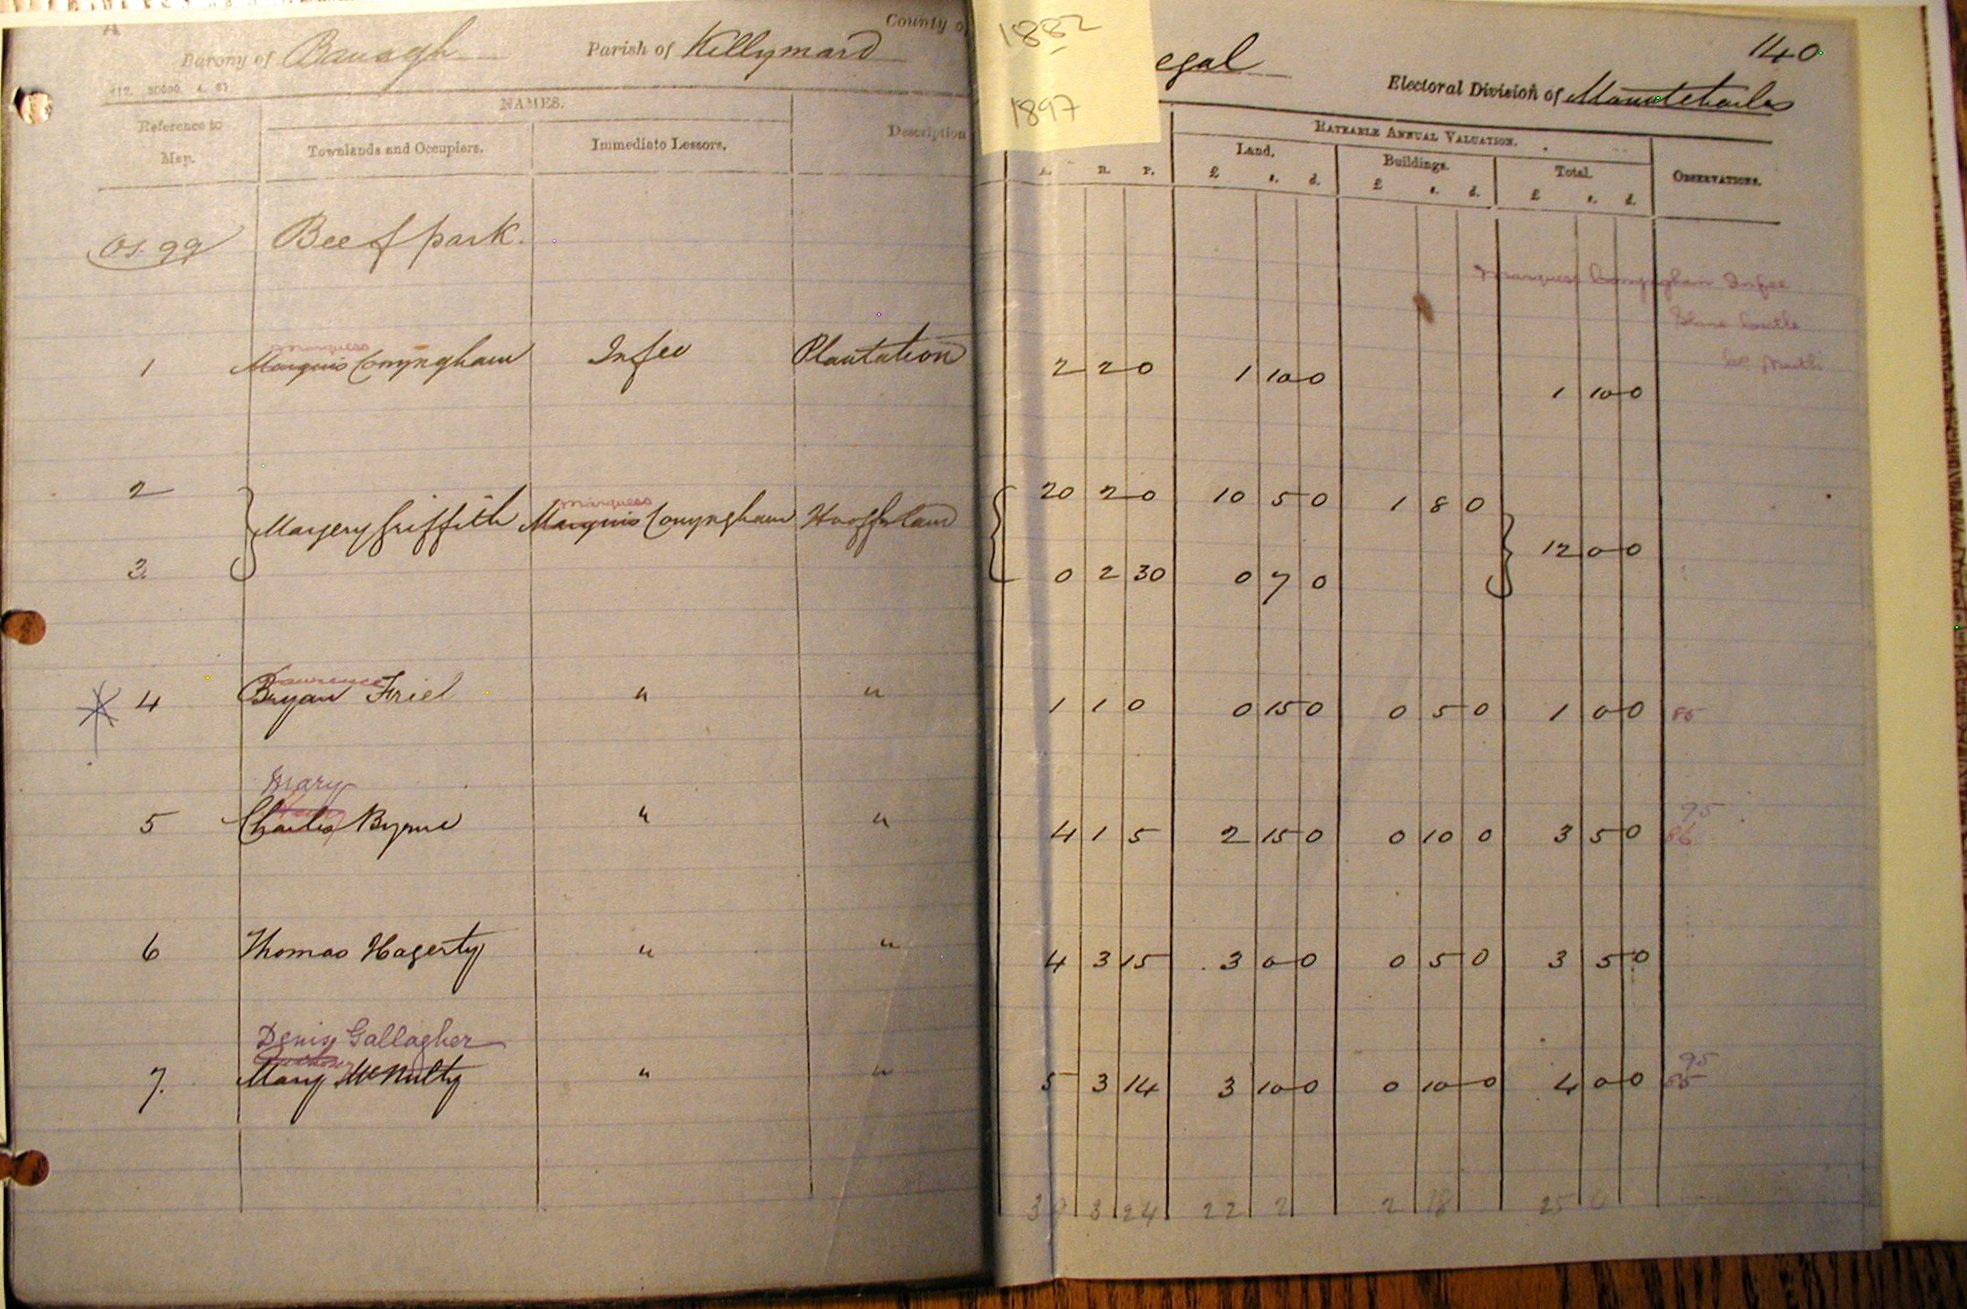 County o
1882
1897
egal
140
Barony of Banagh
Parish of Killymard
Electoral Division of Mountcharles
Reference to Map.
NAMES.
Townlands and Occupiers.
Immediate Lessors.
Description
A. R. P.
RATEABLE ANNUAL VALUATION.
Land. £ s. d.
Buildings. £ s. d.
Total. £ s. d.
OBSERVATIONS.
OS. 99 Beefpark.
Marquess Conyngham Infee
Slane Castle
Co. Meath
Marquess
1 Marquis Conyngham Infee Plantation 2 2 0 1 10 0 1 10 0
Marquess
2 20 2 0 10 5 0 1 8 0
Margery Griffith Marquis Conyngham 12 0 0
3 0 2 30 0 7 0
Lawrence
4 Bryan Friel " " 1 1 0 0 15 0 0 5 0 1 0 0 85
Mary
95
5 Charles Byrne " " 4 1 5 2 15 0 0 10 0 3 5 0 86
6 Thomas Hagerty " " 4 3 15 3 0 0 0 5 0 3 5 0
Denis Gallagher
95
7. Mary McNulty " " 5 3 14 3 10 0 0 10 0 4 0 0 85
39 3 24 22 2 2 18 25 0